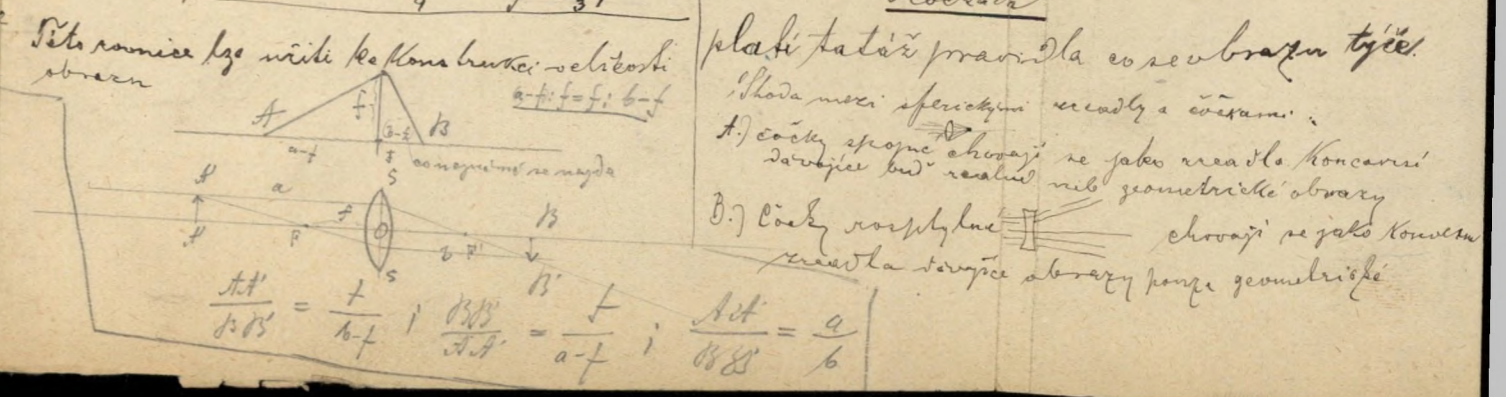 Této rovnice lze užiti ke Konstrukci velikosti
obrazu
a-f : f = f : b-f
f
A
B
a-f
b-f
f
S
A
a
f
B
A'
F
O
b
F'
B'
S
AA' / BB' = f / b-f ; BB' / AA' = f / a-f ; AA' / BB' = a / b
platí tatáž pravidla co se obrazu týče.
Shoda mezi sferickými zrcadly a čočkami:
A.) čočky spojné chovají se jako zrcadla Koncavní
dávajíce buď realné neb geometrické obrazy
B.) Čočky rozptylné chovají se jako Konvexní
zrcadla dávajíce obrazy pouze geometrické